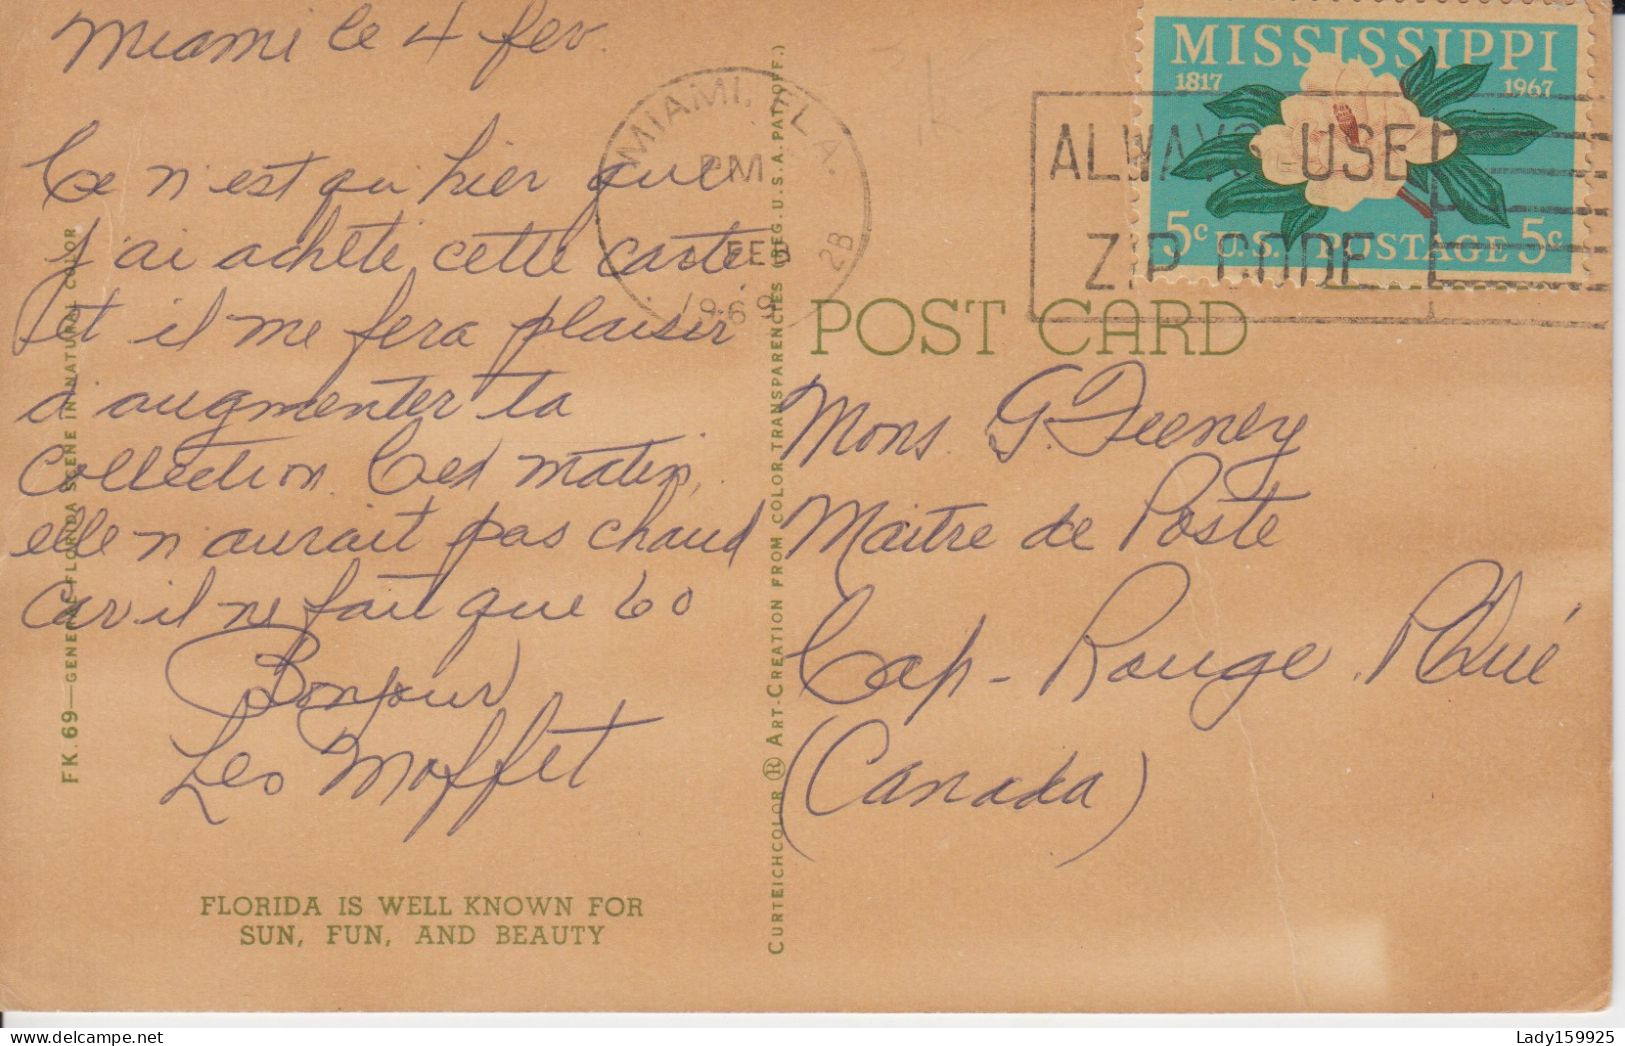 Miami le 4 fev.
Ce n'est qu'hier que
j'ai acheté cette carte
et il me fera plaisir
d'augmenter ta
Collection. Ces matin,
elle n'aurait pas chaud
car il ne fait que 60
Bonjour
Leo Moffet
FLORIDA IS WELL KNOWN FOR
SUN, FUN, AND BEAUTY
FK.69—GENERAL FLORIDA SCENE IN NATURAL COLOR
CURTEICHCOLOR ® ART-CREATION FROM COLOR TRANSPARENCIES (REG. U.S.A. PAT. OFF.)
MIAMI, FLA.
PM
4 FEB
1969
2B
ALWAYS USE
ZIP CODE
MISSISSIPPI
1817 1967
5c U.S. POSTAGE 5c
POST CARD
Mons. G. Feeney
Maitre de Poste
Cap-Rouge, P.Qué
(Canada)
Lady159925